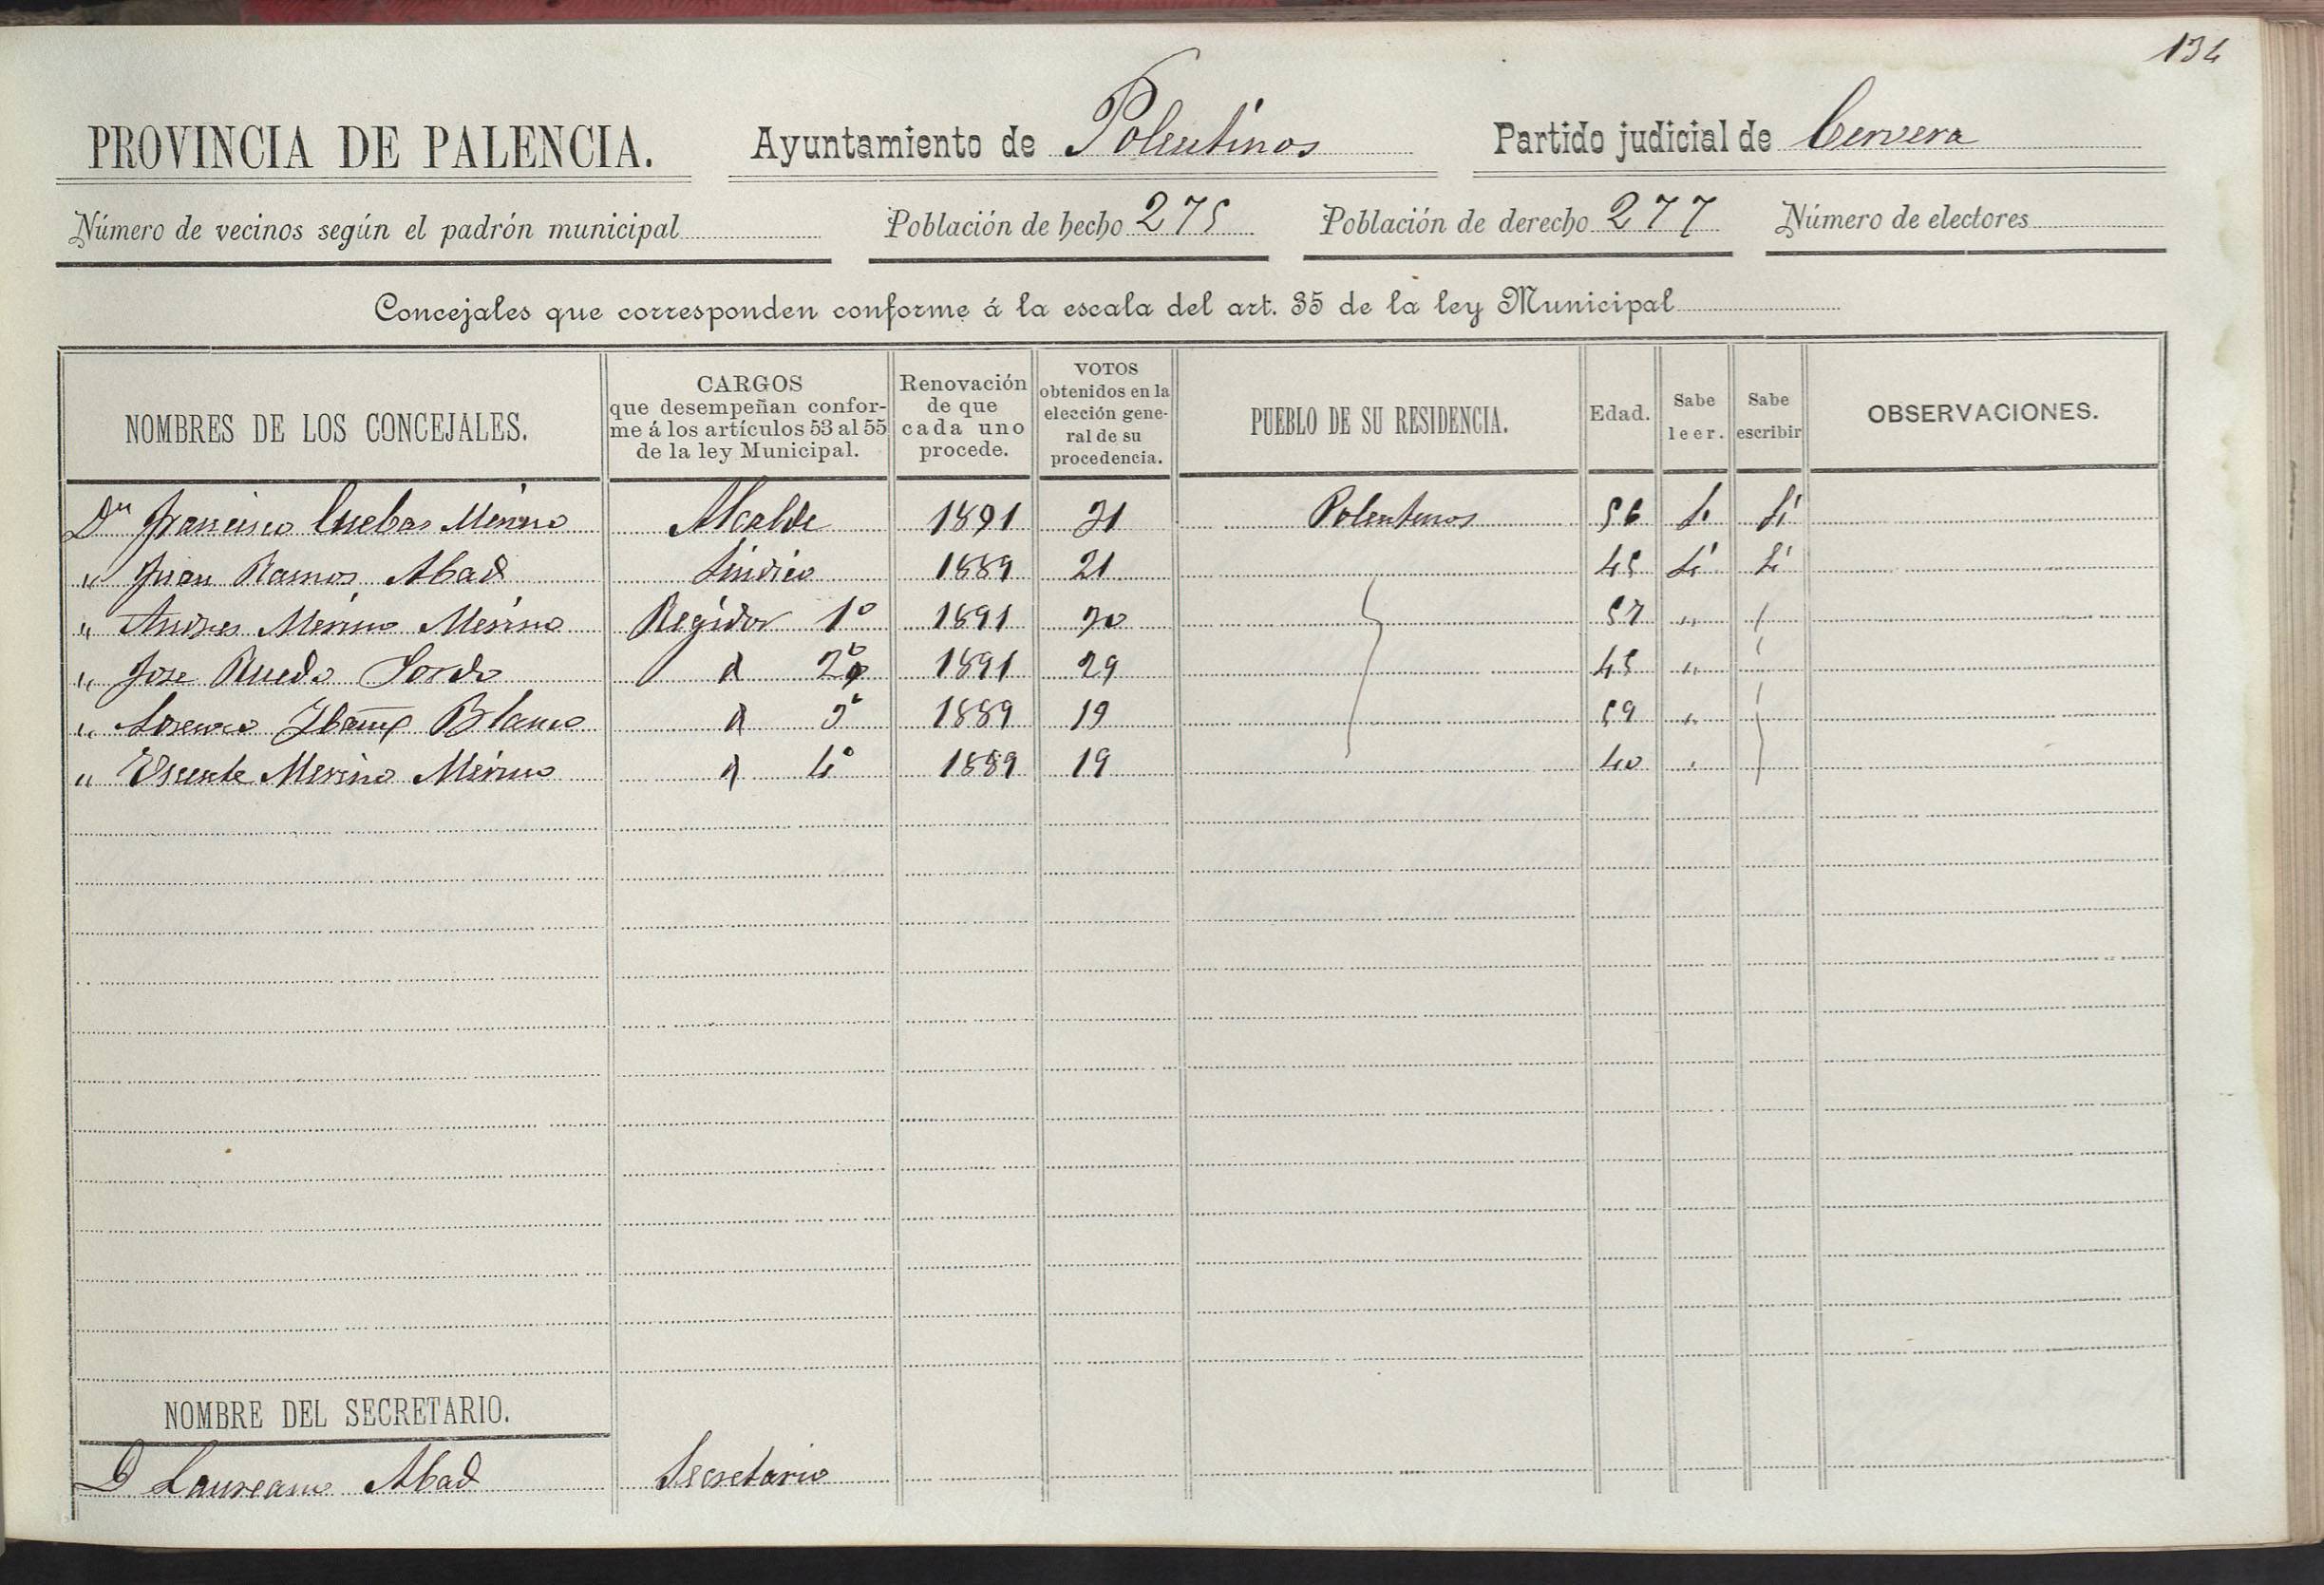 134
PROVINCIA DE PALENCIA. Ayuntamiento de Polentinos Partido judicial de Cervera
Número de vecinos según el padrón municipal Población de hecho 275 Población de derecho 277 Número de electores
Concejales que corresponden conforme á la escala del art. 35 de la ley Municipal
NOMBRES DE LOS CONCEJALES. CARGOS que desempeñan conforme á los artículos 53 al 55 de la ley Municipal. Renovación de que cada uno procede. VOTOS obtenidos en la elección general de su procedencia. PUEBLO DE SU RESIDENCIA. Edad. Sabe leer. Sabe escribir OBSERVACIONES.
Dn Francisco Cuebas Merino Alcalde 1891 31 Polentinos 56 Si Sí
" Juan Ramos Abad Sindico 1889 21 45 Sí Sí
" Andres Merino Merino Regidor 1º 1891 30 57 "
" Jose Rueda Sordo d 2º 1891 29 45 "
" Lorenzo Ibañez Blanco d 3º 1889 19 59 "
" Vicente Merino Merino d 4º 1889 19 40 "
NOMBRE DEL SECRETARIO.
D Laureano Abad Secretario